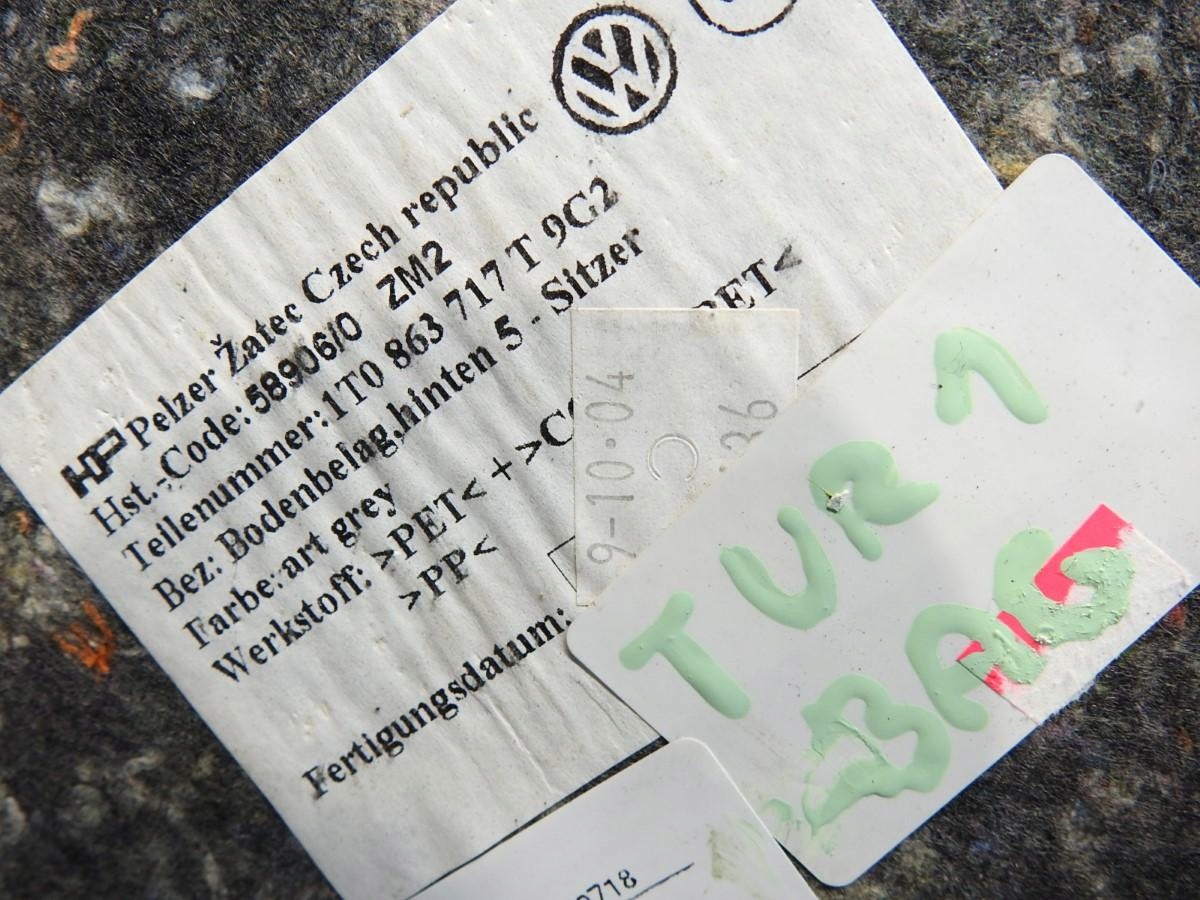 HP Pelzer Žatec Czech republic
Hst.-Code: 58906/0 ZM2
Teilenummer: 1T0 863 717 T 9G2
Bez: Bodenbelag,hinten 5 - Sitzer
Farbe: art grey
Werkstoff: >PET< + PET<
>PP<
Fertigungsdatum:
9-10·04
C
36
TUR 1
BAG
0718